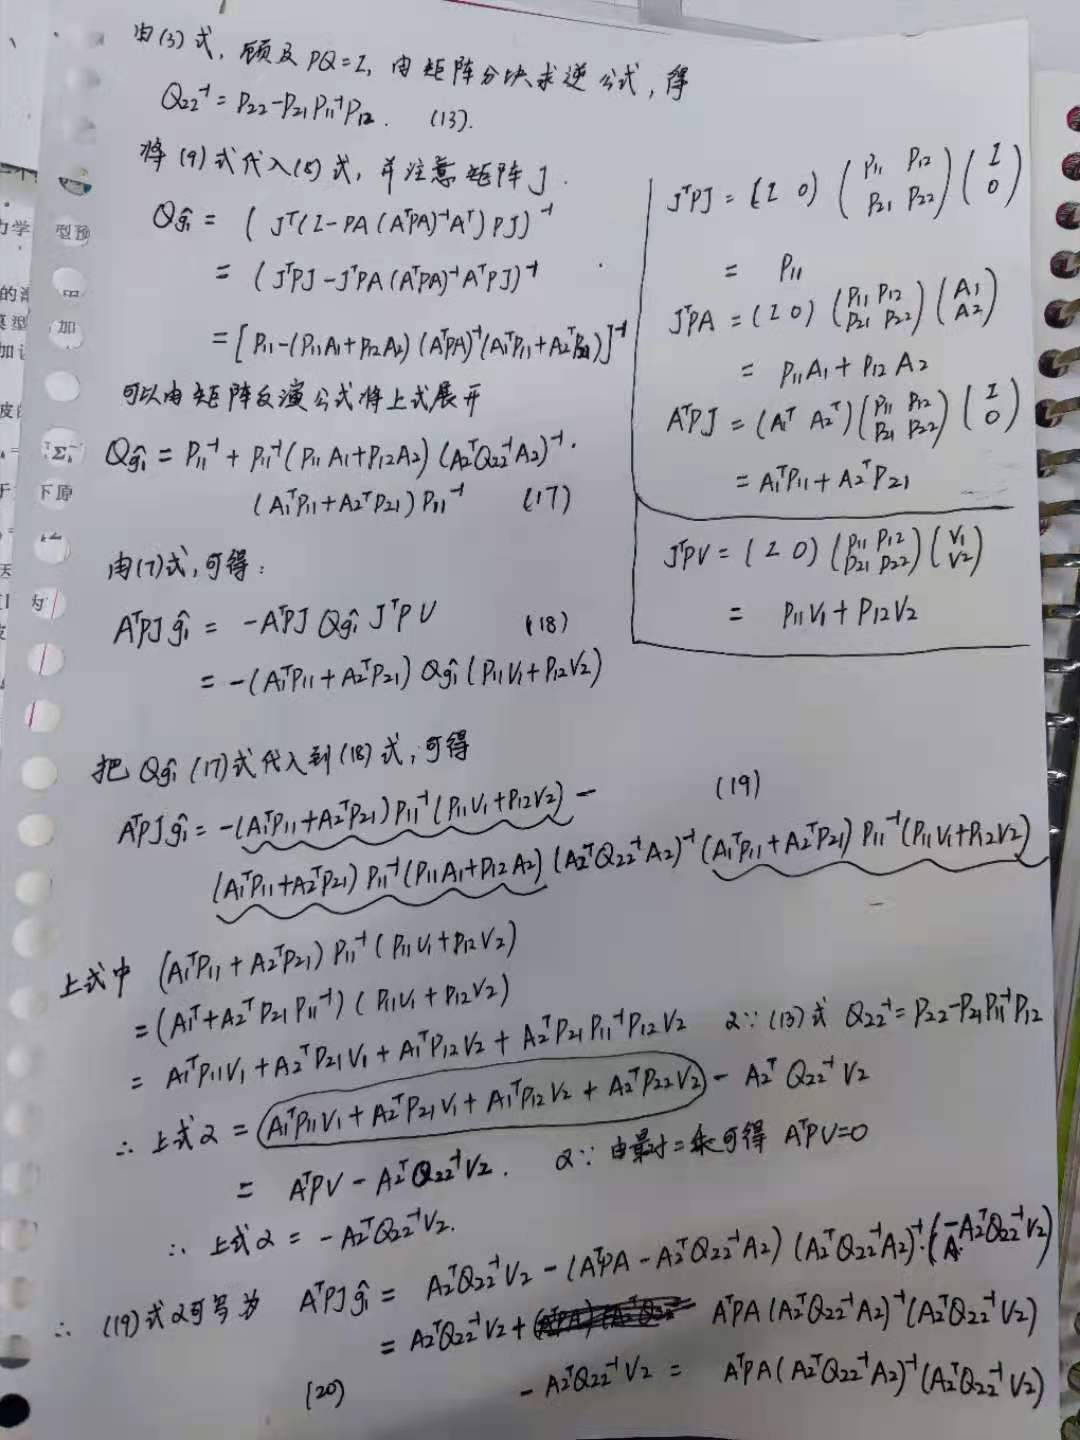 由(3)式, 顾及 PQ=I, 由矩阵分块求逆公式, 得
Q₂₂⁻¹ = P₂₂-P₂₁P₁₁⁻¹P₁₂. (13).
将(9)式代入(8)式, 并注意矩阵J.
Qĝ₁ = (Jᵀ(I-PA(AᵀPA)⁻¹Aᵀ)PJ)⁻¹
= (JᵀPJ-JᵀPA(AᵀPA)⁻¹AᵀPJ)⁻¹
= [P₁₁-(P₁₁A₁+P₁₂A₂)(AᵀPA)⁻¹(A₁ᵀP₁₁+A₂ᵀP₂₁)]⁻¹
可以由矩阵反演公式将上式展开
Qĝ₁ = P₁₁⁻¹ + P₁₁⁻¹(P₁₁A₁+P₁₂A₂)(A₂ᵀQ₂₂⁻¹A₂)⁻¹·
(A₁ᵀP₁₁+A₂ᵀP₂₁)P₁₁⁻¹ (17)
JᵀPJ = (I 0) (P₁₁ P₁₂
P₂₁ P₂₂) (I
0)
= P₁₁
JᵀPA = (I 0) (P₁₁ P₁₂
P₂₁ P₂₂) (A₁
A₂)
= P₁₁A₁ + P₁₂A₂
AᵀPJ = (A₁ᵀ A₂ᵀ) (P₁₁ P₁₂
P₂₁ P₂₂) (I
0)
= A₁ᵀP₁₁+A₂ᵀP₂₁
JᵀPV = (I 0) (P₁₁ P₁₂
P₂₁ P₂₂) (V₁
V₂)
= P₁₁V₁ + P₁₂V₂
由(7)式, 可得:
AᵀPJĝ₁ = -AᵀPJ Qĝ₁ JᵀPV (18)
= -(A₁ᵀP₁₁+A₂ᵀP₂₁) Qĝ₁ (P₁₁V₁+P₁₂V₂)
把 Qĝ₁ (17)式代入到(18)式, 可得
AᵀPJĝ₁ = -(A₁ᵀP₁₁+A₂ᵀP₂₁)P₁₁⁻¹(P₁₁V₁+P₁₂V₂) - (19)
(A₁ᵀP₁₁+A₂ᵀP₂₁)P₁₁⁻¹(P₁₁A₁+P₁₂A₂)(A₂ᵀQ₂₂⁻¹A₂)⁻¹(A₁ᵀP₁₁+A₂ᵀP₂₁)P₁₁⁻¹(P₁₁V₁+P₁₂V₂)
上式中 (A₁ᵀP₁₁+A₂ᵀP₂₁)P₁₁⁻¹(P₁₁V₁+P₁₂V₂)
= (A₁ᵀ+A₂ᵀP₂₁P₁₁⁻¹)(P₁₁V₁+P₁₂V₂)
= A₁ᵀP₁₁V₁ + A₂ᵀP₂₁V₁ + A₁ᵀP₁₂V₂ + A₂ᵀP₂₁P₁₁⁻¹P₁₂V₂ 又∵(13)式 Q₂₂⁻¹=P₂₂-P₂₁P₁₁⁻¹P₁₂
∴ 上式又 = A₁ᵀP₁₁V₁ + A₂ᵀP₂₁V₁ + A₁ᵀP₁₂V₂ + A₂ᵀP₂₂V₂ - A₂ᵀQ₂₂⁻¹V₂
= AᵀPV - A₂ᵀQ₂₂⁻¹V₂. 又∵ 由最小二乘可得 AᵀPV=0
∴ 上式又 = -A₂ᵀQ₂₂⁻¹V₂.
∴ (19)式又可写为 AᵀPJĝ₁ = A₂ᵀQ₂₂⁻¹V₂ - (AᵀPA - A₂ᵀQ₂₂⁻¹A₂)(A₂ᵀQ₂₂⁻¹A₂)⁻¹·(-A₂ᵀQ₂₂⁻¹V₂)
= A₂ᵀQ₂₂⁻¹V₂ + AᵀPA(A₂ᵀQ₂₂⁻¹A₂)⁻¹(A₂ᵀQ₂₂⁻¹V₂)
(20) - A₂ᵀQ₂₂⁻¹V₂ = AᵀPA(A₂ᵀQ₂₂⁻¹A₂)⁻¹(A₂ᵀQ₂₂⁻¹V₂)